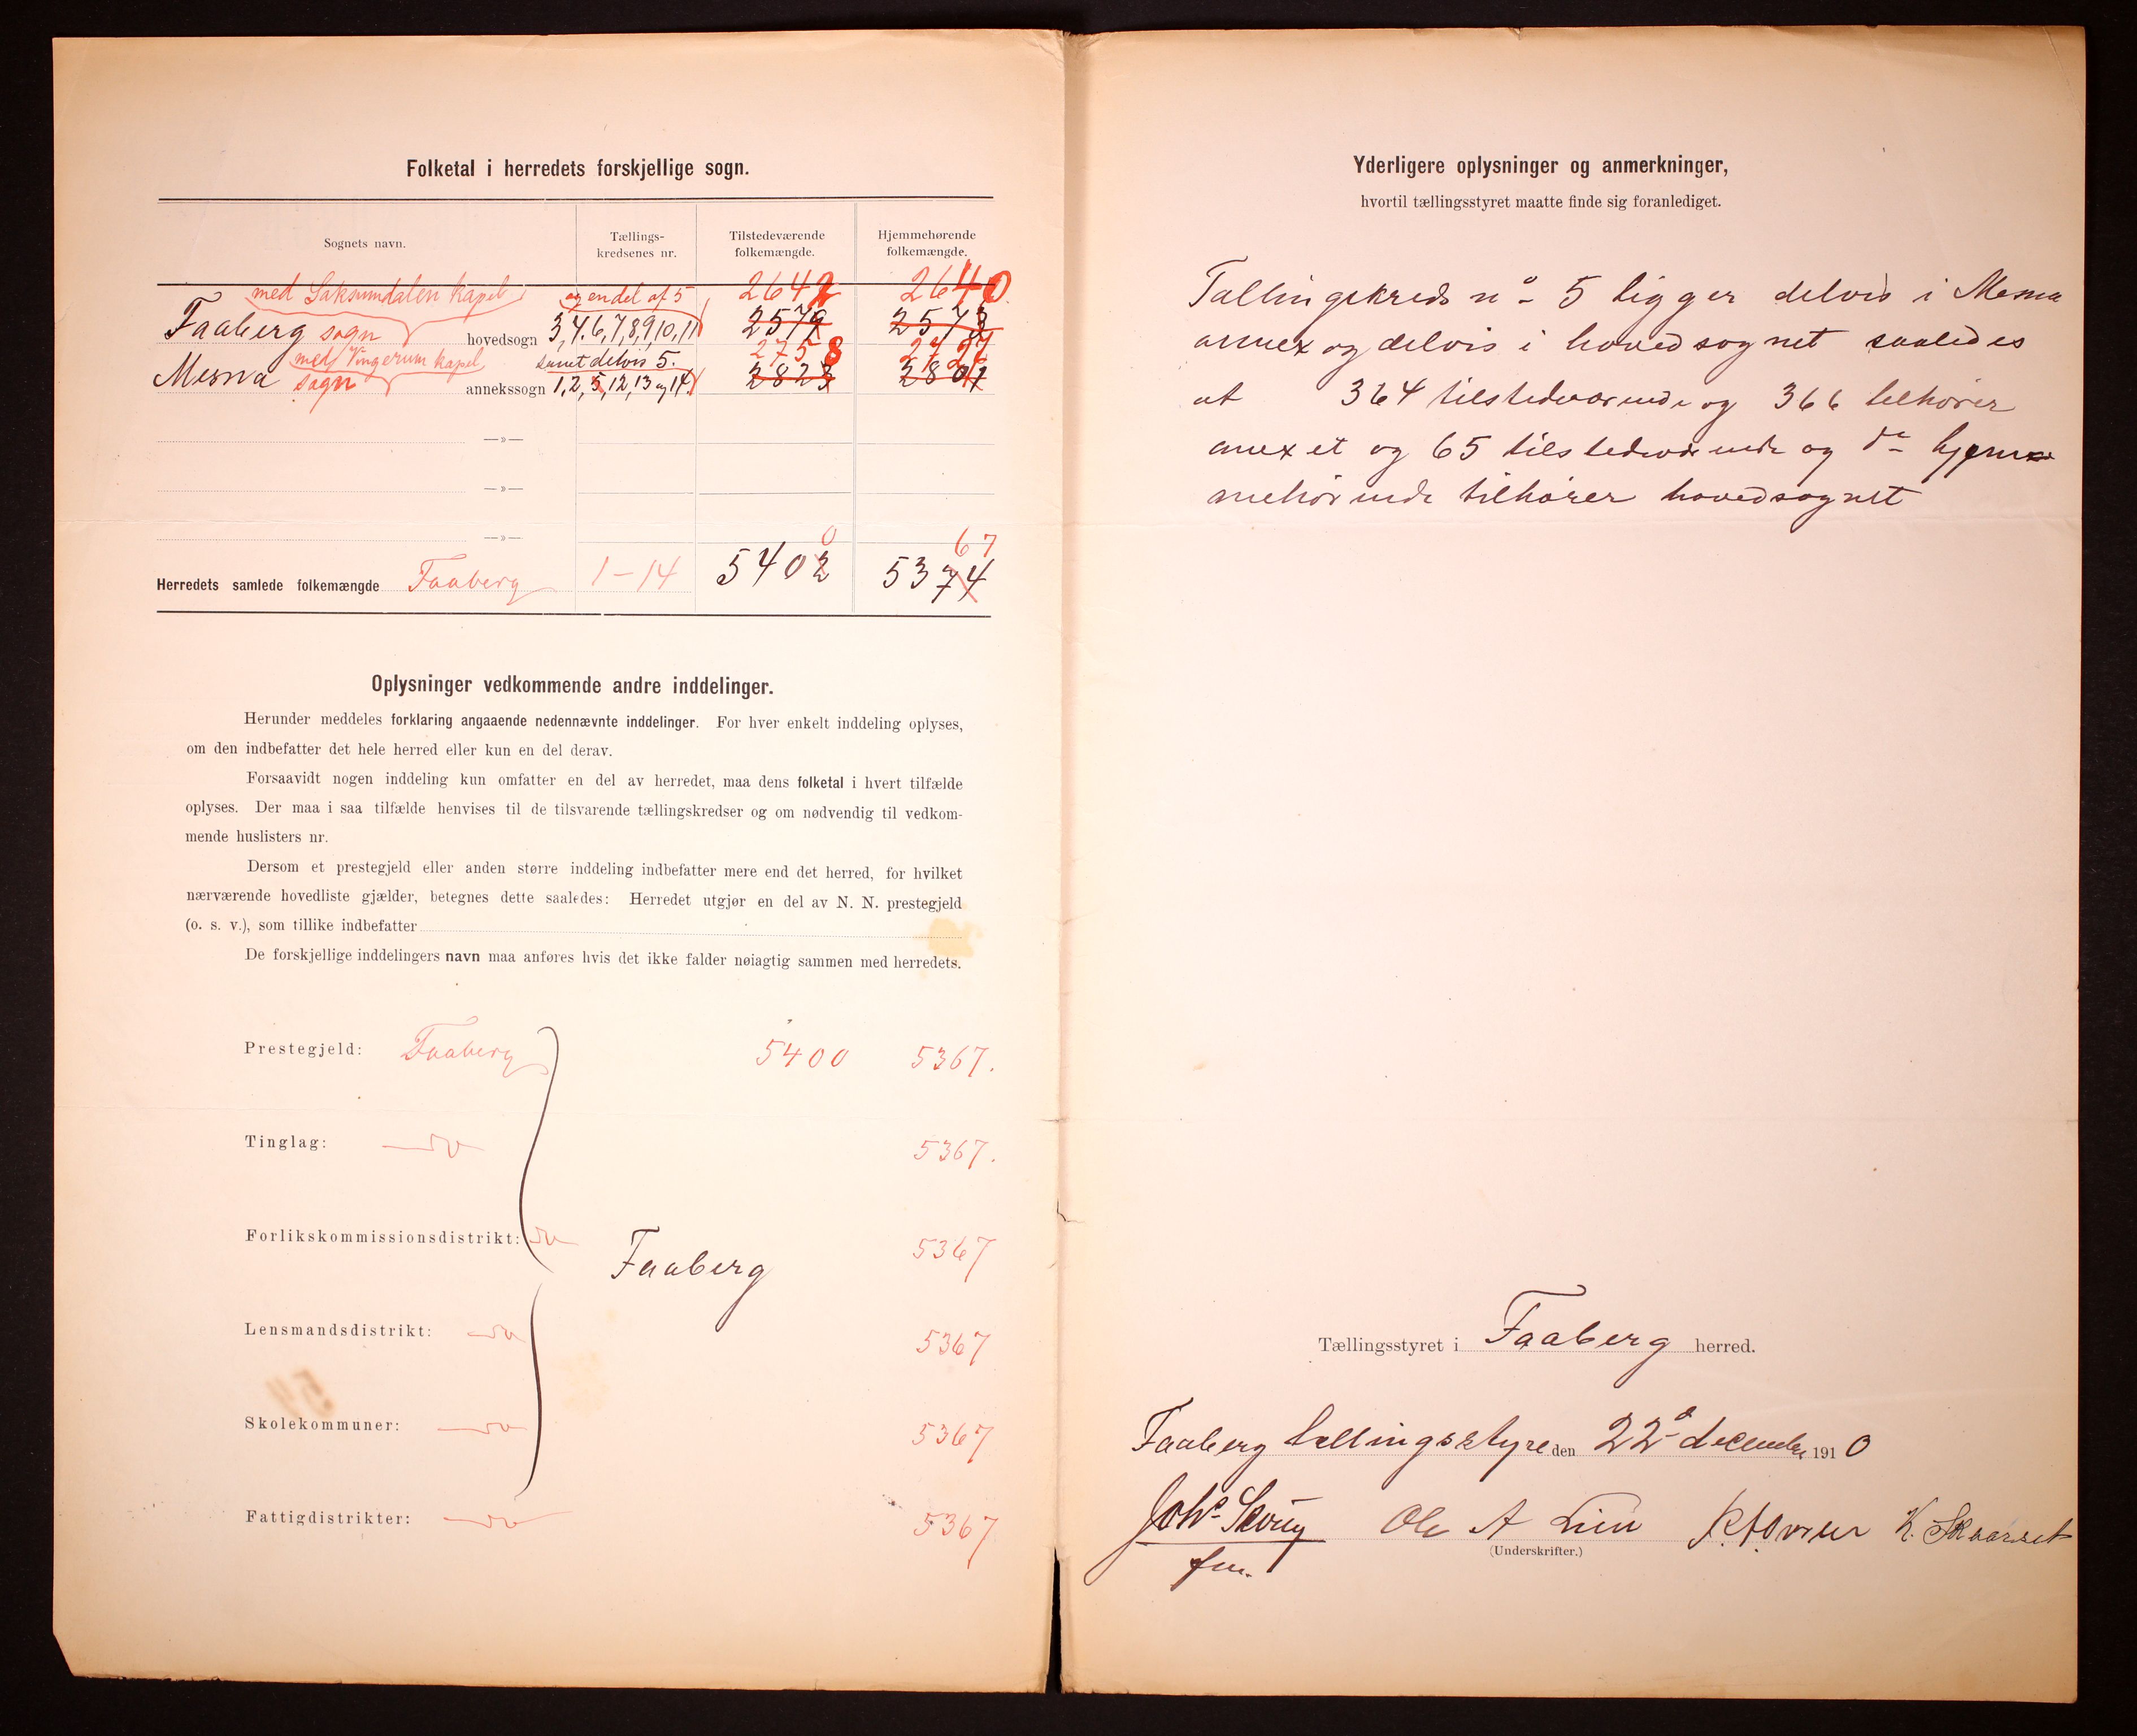 Folketal i herredets forskjellige sogn.
Sognets navn.
Tællings-
kredsenes nr.
Tilstedeværende
folkemængde.
Hjemmehørende
folkemængde.
med Saksumdalen kapel og en del af 5 2642 2640
Faaberg sogn hovedsogn 3, 4. 6, 7, 8, 9, 10, 11 2579 2573
med Vingerum kapel samt delvis 5. 2758 2727
Mesna sogn annekssogn 1, 2, 5, 12, 13 og 14. 2823 2801
—»—
—»—
—»—
0 67
Herredets samlede folkemængde Faaberg 1-14 5402 5374
Oplysninger vedkommende andre inddelinger.
Herunder meddeles forklaring angaaende nedennævnte inddelinger. For hver enkelt inddeling oplyses,
om den indbefatter det hele herred eller kun en del derav.
Forsaavidt nogen inddeling kun omfatter en del av herredet, maa dens folketal i hvert tilfælde
oplyses. Der maa i saa tilfælde henvises til de tilsvarende tællingskredser og om nødvendig til vedkom-
mende huslisters nr.
Dersom et prestegjeld eller anden større inddeling indbefatter mere end det herred, for hvilket
nærværende hovedliste gjælder, betegnes dette saaledes: Herredet utgjør en del av N. N. prestegjeld
(o. s. v.), som tillike indbefatter
De forskjellige inddelingers navn maa anføres hvis det ikke falder nøiagtig sammen med herredets.
Prestegjeld: Faaberg 5400 5367.
Tinglag: do 5367.
Forlikskommissionsdistrikt: do 5367
Faaberg
Lensmandsdistrikt: do 5367
Skolekommuner: do 5367
Fattigdistrikter: do 5367
Yderligere oplysninger og anmerkninger,
hvortil tællingsstyret maatte finde sig foranlediget.
Tællingskreds no 5 ligger delvis i Mesna
annex og delvis i hovedsognet saaledes
at 364 tilstedeværende og 366 tilhører
anexet og 65 tilstedeværende og do hjem
mehørende tilhører hovedsognet
Tællingsstyret i Faaberg herred.
Faaberg tællingsstyre den 22d december 1910
Ole A Lien K. Skaarset
(Underskrifter.)
fm.